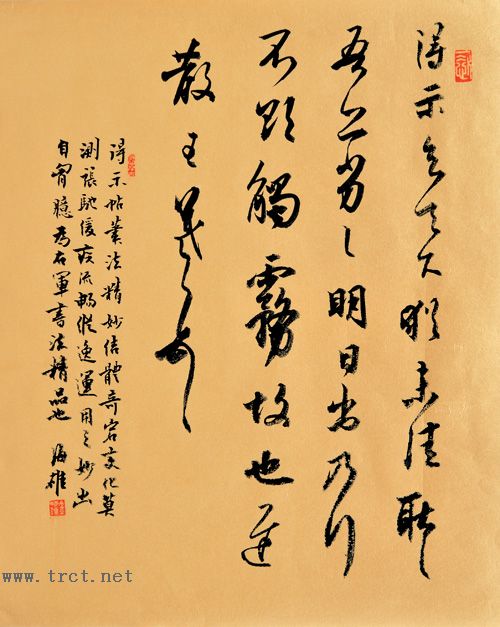 得示知足下猶未佳耿〻
吾亦劣〻明日出乃行
不欲觸霧故也遲
散王羲之頓首
得示帖筆法精妙結體奇宕變化莫
測張馳緩疾流暢縱逸運用之妙出
自胸臆為右軍書法精品也 海雄
www.trct.net